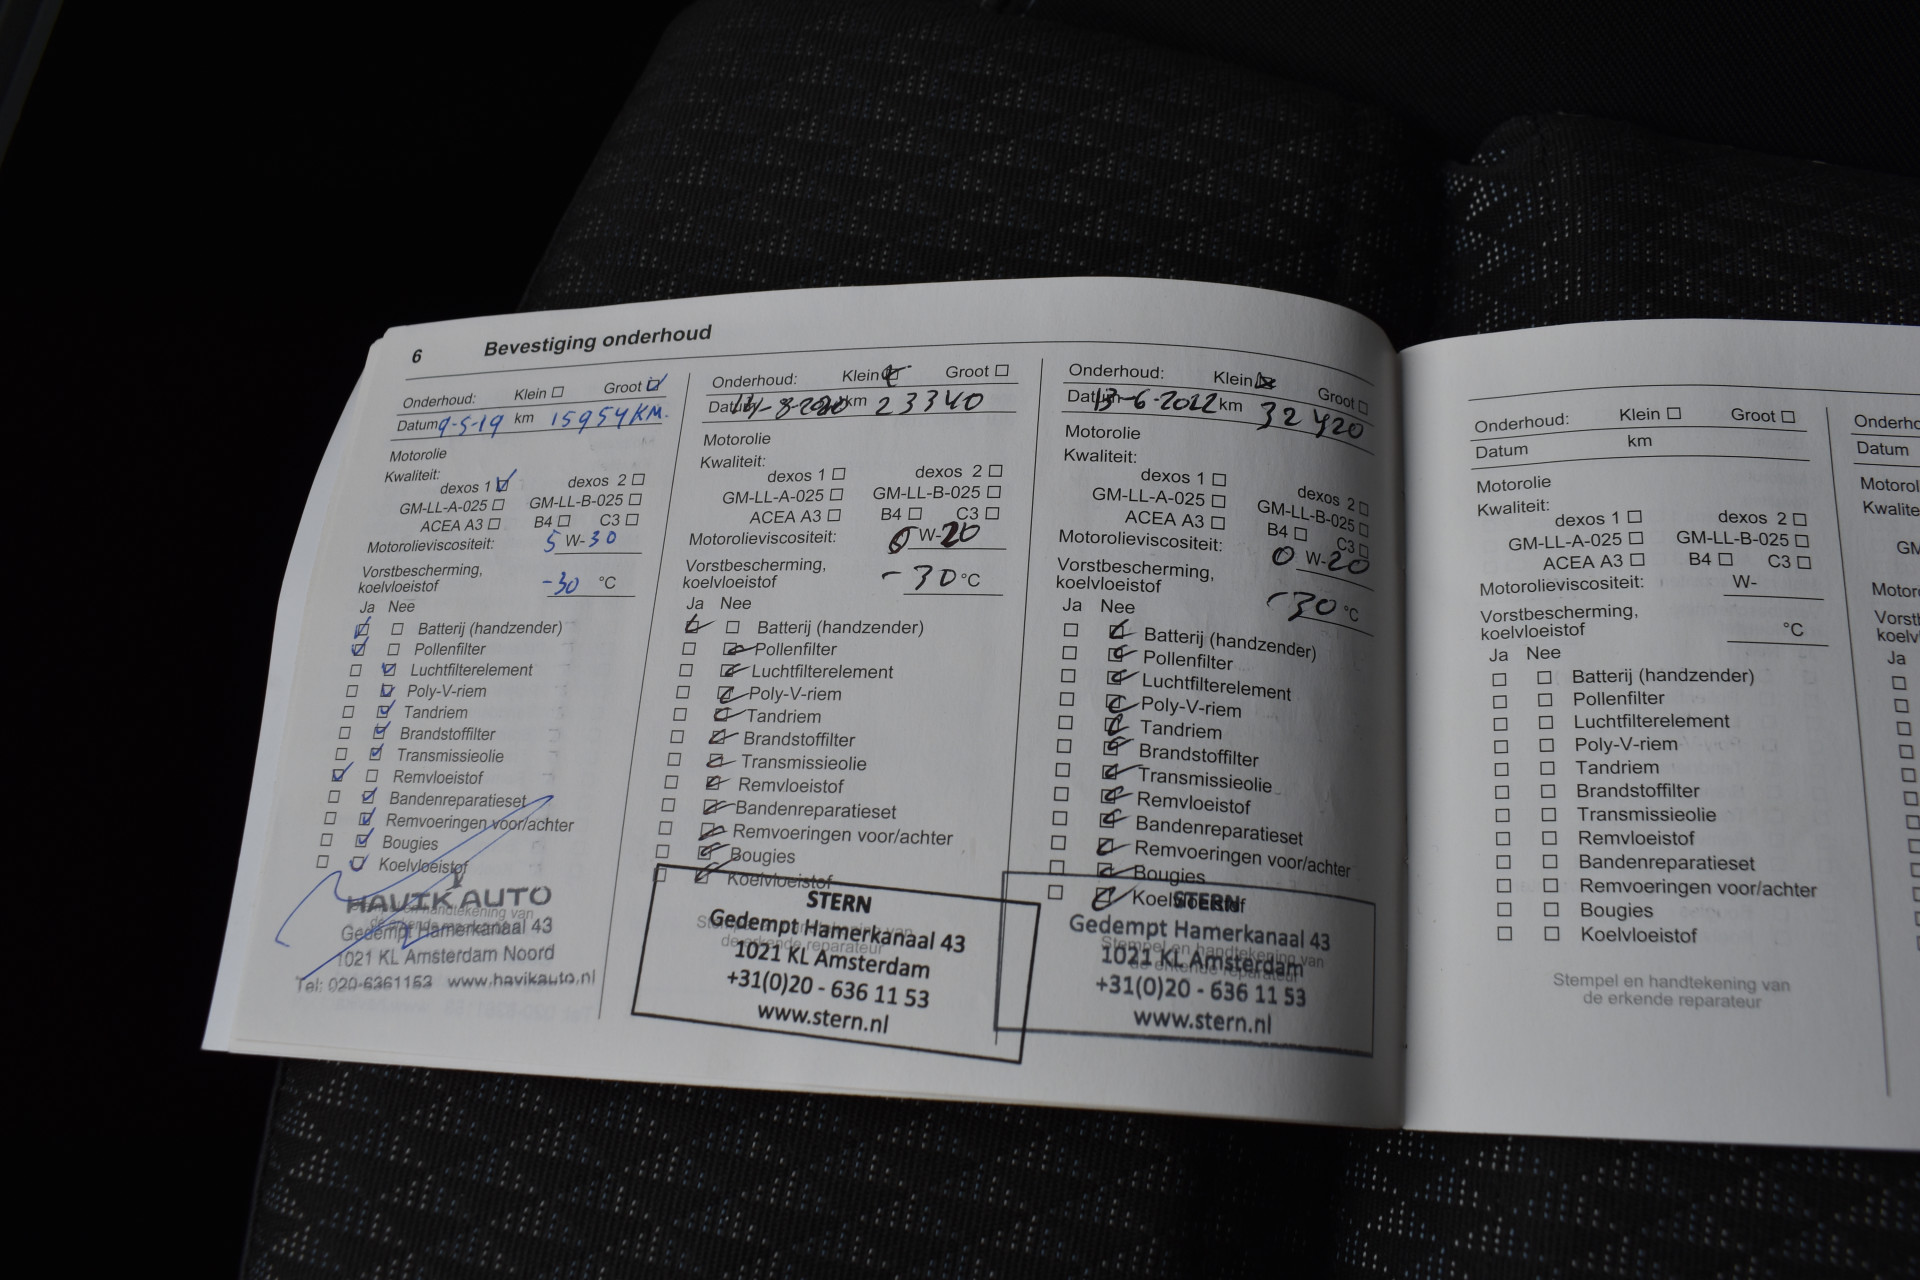 6 Bevestiging onderhoud
Onderhoud: Klein Groot
Datum 9-5-19 km 15954 KM.
Motorolie
Kwaliteit:
dexos 1 dexos 2
GM-LL-A-025 GM-LL-B-025
ACEA A3 B4 C3
Motorolieviscositeit: 5 W-30
Vorstbescherming,
koelvloeistof -30 °C
Ja Nee
Batterij (handzender)
Pollenfilter
Luchtfilterelement
Poly-V-riem
Tandriem
Brandstoffilter
Transmissieolie
Remvloeistof
Bandenreparatieset
Remvoeringen voor/achter
Bougies
Koelvloeistof
HAVIK AUTO
Stempel en handtekening van
de erkende reparateur
Gedempt Hamerkanaal 43
1021 KL Amsterdam Noord
Tel: 020-6361153 www.havikauto.nl
Onderhoud: Klein Groot
Datum km 23340
Motorolie
Kwaliteit:
dexos 1 dexos 2
GM-LL-A-025 GM-LL-B-025
ACEA A3 B4 C3
Motorolieviscositeit: 0 W-20
Vorstbescherming,
koelvloeistof -30 °C
Ja Nee
Batterij (handzender)
Pollenfilter
Luchtfilterelement
Poly-V-riem
Tandriem
Brandstoffilter
Transmissieolie
Remvloeistof
Bandenreparatieset
Remvoeringen voor/achter
Bougies
Koelvloeistof
Stempel en handtekening van
de erkende reparateur
STERN
Gedempt Hamerkanaal 43
1021 KL Amsterdam
+31(0)20 - 636 11 53
www.stern.nl
Onderhoud: Klein Groot
Datum 13-6-2022 km 32420
Motorolie
Kwaliteit:
dexos 1 dexos 2
GM-LL-A-025 GM-LL-B-025
ACEA A3 B4 C3
Motorolieviscositeit: 0 W-20
Vorstbescherming,
koelvloeistof -30 °C
Ja Nee
Batterij (handzender)
Pollenfilter
Luchtfilterelement
Poly-V-riem
Tandriem
Brandstoffilter
Transmissieolie
Remvloeistof
Bandenreparatieset
Remvoeringen voor/achter
Bougies
Koelvloeistof
Stempel en handtekening van
de erkende reparateur
STERN
Gedempt Hamerkanaal 43
1021 KL Amsterdam
+31(0)20 - 636 11 53
www.stern.nl
Onderhoud: Klein Groot
Datum km
Motorolie
Kwaliteit:
dexos 1 dexos 2
GM-LL-A-025 GM-LL-B-025
ACEA A3 B4 C3
Motorolieviscositeit: W-
Vorstbescherming,
koelvloeistof °C
Ja Nee
Batterij (handzender)
Pollenfilter
Luchtfilterelement
Poly-V-riem
Tandriem
Brandstoffilter
Transmissieolie
Remvloeistof
Bandenreparatieset
Remvoeringen voor/achter
Bougies
Koelvloeistof
Stempel en handtekening van
de erkende reparateur
Datum
Ja